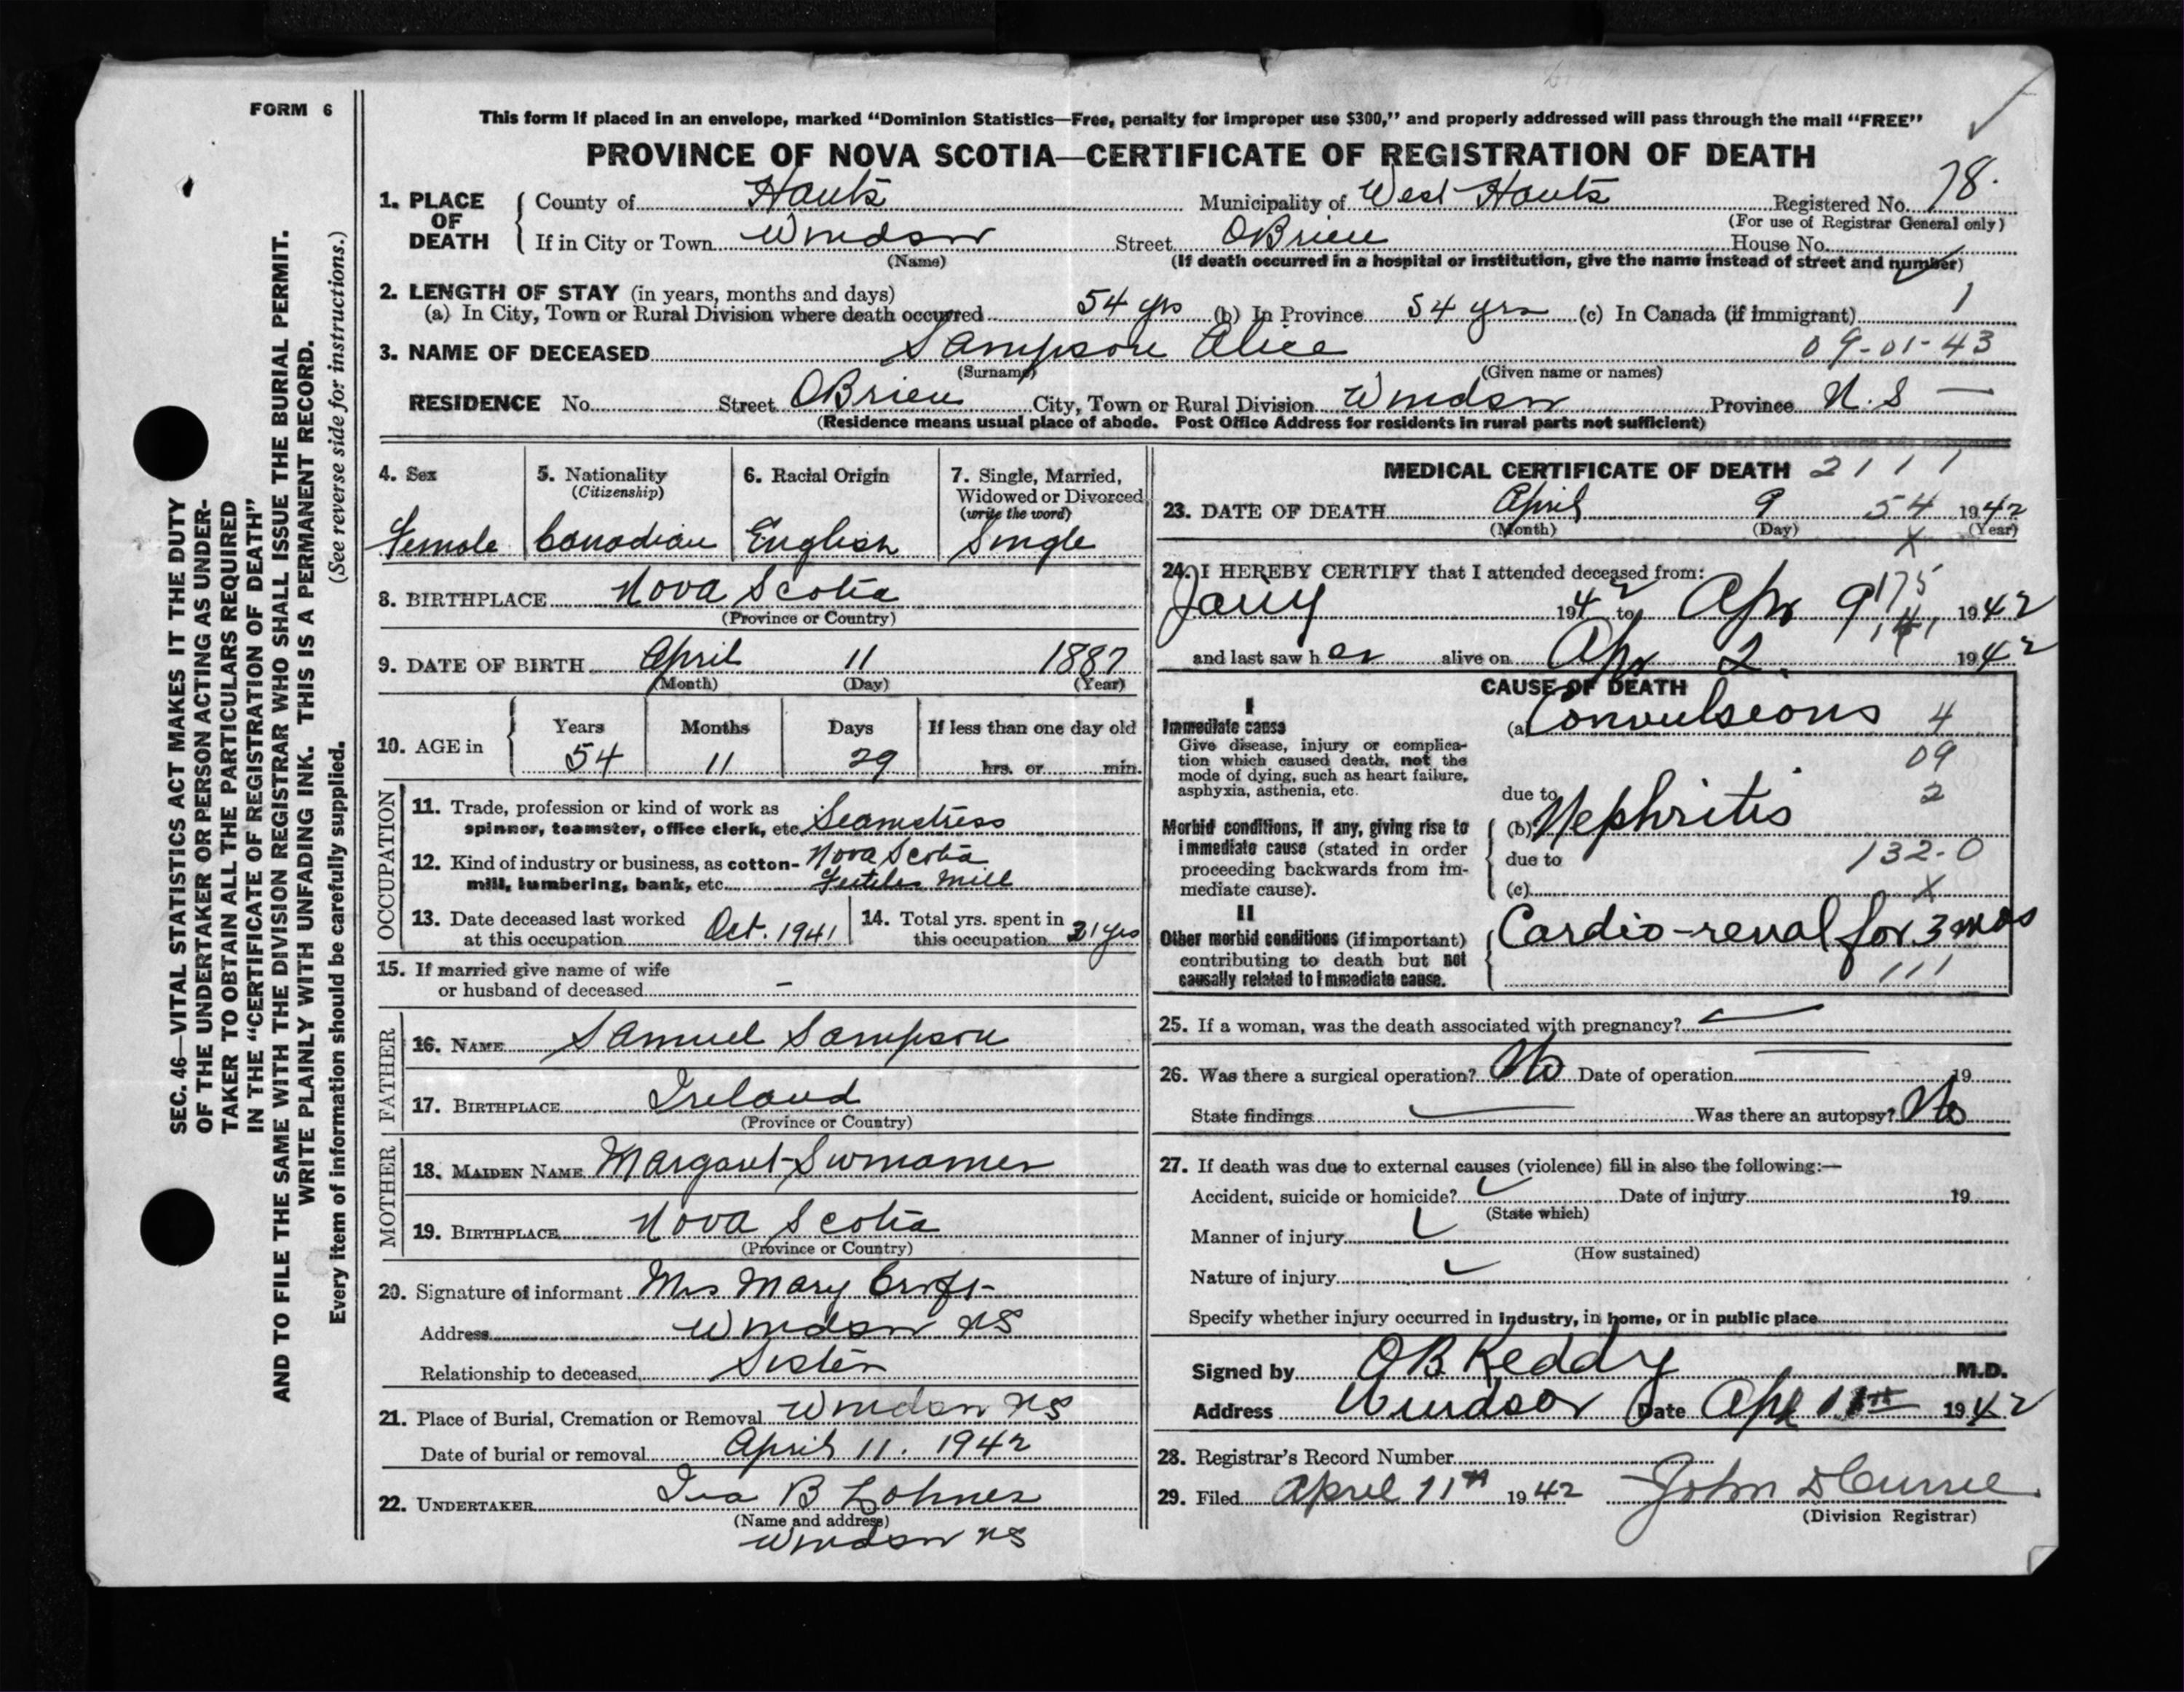 FORM 6
SEC. 46—VITAL STATISTICS ACT MAKES IT THE DUTY
OF THE UNDERTAKER OR PERSON ACTING AS UNDER-
TAKER TO OBTAIN ALL THE PARTICULARS REQUIRED
IN THE "CERTIFICATE OF REGISTRATION OF DEATH"
AND TO FILE THE SAME WITH THE DIVISION REGISTRAR WHO SHALL ISSUE THE BURIAL PERMIT.
WRITE PLAINLY WITH UNFADING INK. THIS IS A PERMANENT RECORD.
Every item of information should be carefully supplied. (See reverse side for instructions.)
This form if placed in an envelope, marked "Dominion Statistics—Free, penalty for improper use $300," and properly addressed will pass through the mail "FREE"
PROVINCE OF NOVA SCOTIA—CERTIFICATE OF REGISTRATION OF DEATH
1. PLACE OF DEATH County of Hants Municipality of West Hants Registered No. 78.
(For use of Registrar General only)
If in City or Town Windsor Street OBrien House No.
(Name) (If death occurred in a hospital or institution, give the name instead of street and number)
2. LENGTH OF STAY (in years, months and days)
(a) In City, Town or Rural Division where death occurred 54 yrs (b) In Province 54 yrs (c) In Canada (if immigrant) 1
3. NAME OF DECEASED Sampson Alice 09-01-43
(Surname) (Given name or names)
RESIDENCE No. Street OBrien City, Town or Rural Division Windsor Province N.S —
(Residence means usual place of abode. Post Office Address for residents in rural parts not sufficient)
4. Sex
Female
5. Nationality
(Citizenship)
Canadian
6. Racial Origin
English
7. Single, Married,
Widowed or Divorced
(write the word)
Single
8. BIRTHPLACE Nova Scotia
(Province or Country)
9. DATE OF BIRTH April 11 1887
(Month) (Day) (Year)
10. AGE in Years Months Days If less than one day old
54 11 29 hrs. or min.
OCCUPATION
11. Trade, profession or kind of work as
spinner, teamster, office clerk, etc. Seamstress
12. Kind of industry or business, as cotton- Nova Scotia
mill, lumbering, bank, etc. Textiles Mill
13. Date deceased last worked
at this occupation Oct. 1941
14. Total yrs. spent in
this occupation 31 yrs
15. If married give name of wife
or husband of deceased -
FATHER
16. NAME Samuel Sampson
17. BIRTHPLACE Ireland
(Province or Country)
MOTHER
18. MAIDEN NAME Margaret
19. BIRTHPLACE Nova Scotia
(Province or Country)
20. Signature of informant Mrs Mary
Address Windsor NS
Relationship to deceased Sister
21. Place of Burial, Cremation or Removal Windsor NS
Date of burial or removal April 11. 1942
22. UNDERTAKER Ira B Lohnes
(Name and address)
Windsor NS
MEDICAL CERTIFICATE OF DEATH 2111
23. DATE OF DEATH April 9 54 1942
(Month) (Day) X (Year)
24. I HEREBY CERTIFY that I attended deceased from:
175
1942 to Apr 9 1942
and last saw her alive on Apr 2. 1942
CAUSE OF DEATH
I
Immediate cause
Give disease, injury or complica-
tion which caused death, not the
mode of dying, such as heart failure,
asphyxia, asthenia, etc.
(a) Convulsions 4
09
due to 2
Morbid conditions, if any, giving rise to
immediate cause (stated in order
proceeding backwards from im-
mediate cause).
(b) Nephritis
due to 132-0
(c) X
II
Other morbid conditions (if important)
contributing to death but not
causally related to immediate cause.
Cardio-renal for 3 mos
111
25. If a woman, was the death associated with pregnancy?
26. Was there a surgical operation? No Date of operation 19
State findings Was there an autopsy? No
27. If death was due to external causes (violence) fill in also the following:—
Accident, suicide or homicide? Date of injury 19
(State which)
Manner of injury
(How sustained)
Nature of injury
Specify whether injury occurred in industry, in home, or in public place
Signed by OB Keddy M.D.
Address Windsor Date Apl 11th 1942
28. Registrar's Record Number
29. Filed April 11th 1942 John D Currie
(Division Registrar)